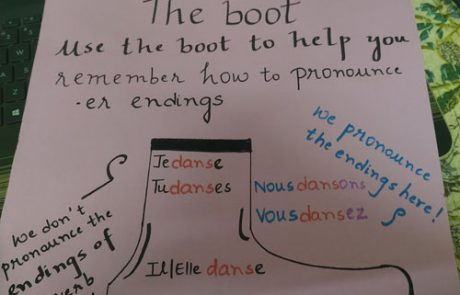 The boot
Use the boot to help you
remember how to pronounce
-er endings
we pronounce
the endings here!
Je danse
Tu danses
Nous dansons
Vous dansez
we don't
pronounce the
endings of
verb
Il/Elle danse